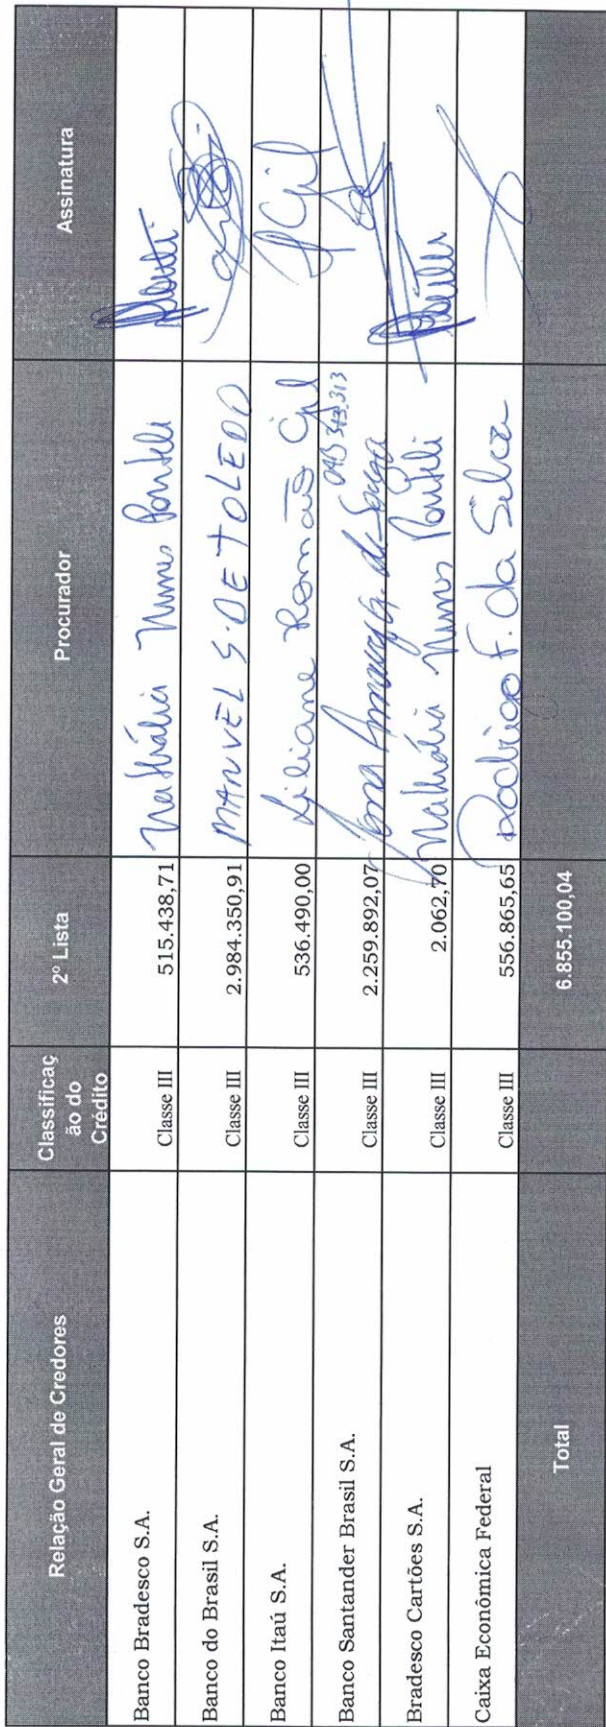 Relação Geral de Credores
Classificaç
ão do
Crédito
2º Lista
Procurador
Assinatura
Banco Bradesco S.A. Classe III 515.438,71 Nathália Nunes
Banco do Brasil S.A. Classe III 2.984.350,91 MANUEL S. DE TOLEDO
Banco Itaú S.A. Classe III 536.490,00 Liliane Romão Gil Gil
Banco Santander Brasil S.A. Classe III 2.259.892,07 de Souza
Bradesco Cartões S.A. Classe III 2.062,70 Nathália Nunes
Caixa Econômica Federal Classe III 556.865,65 Rodrigo F. da Silva
Total 6.855.100,04